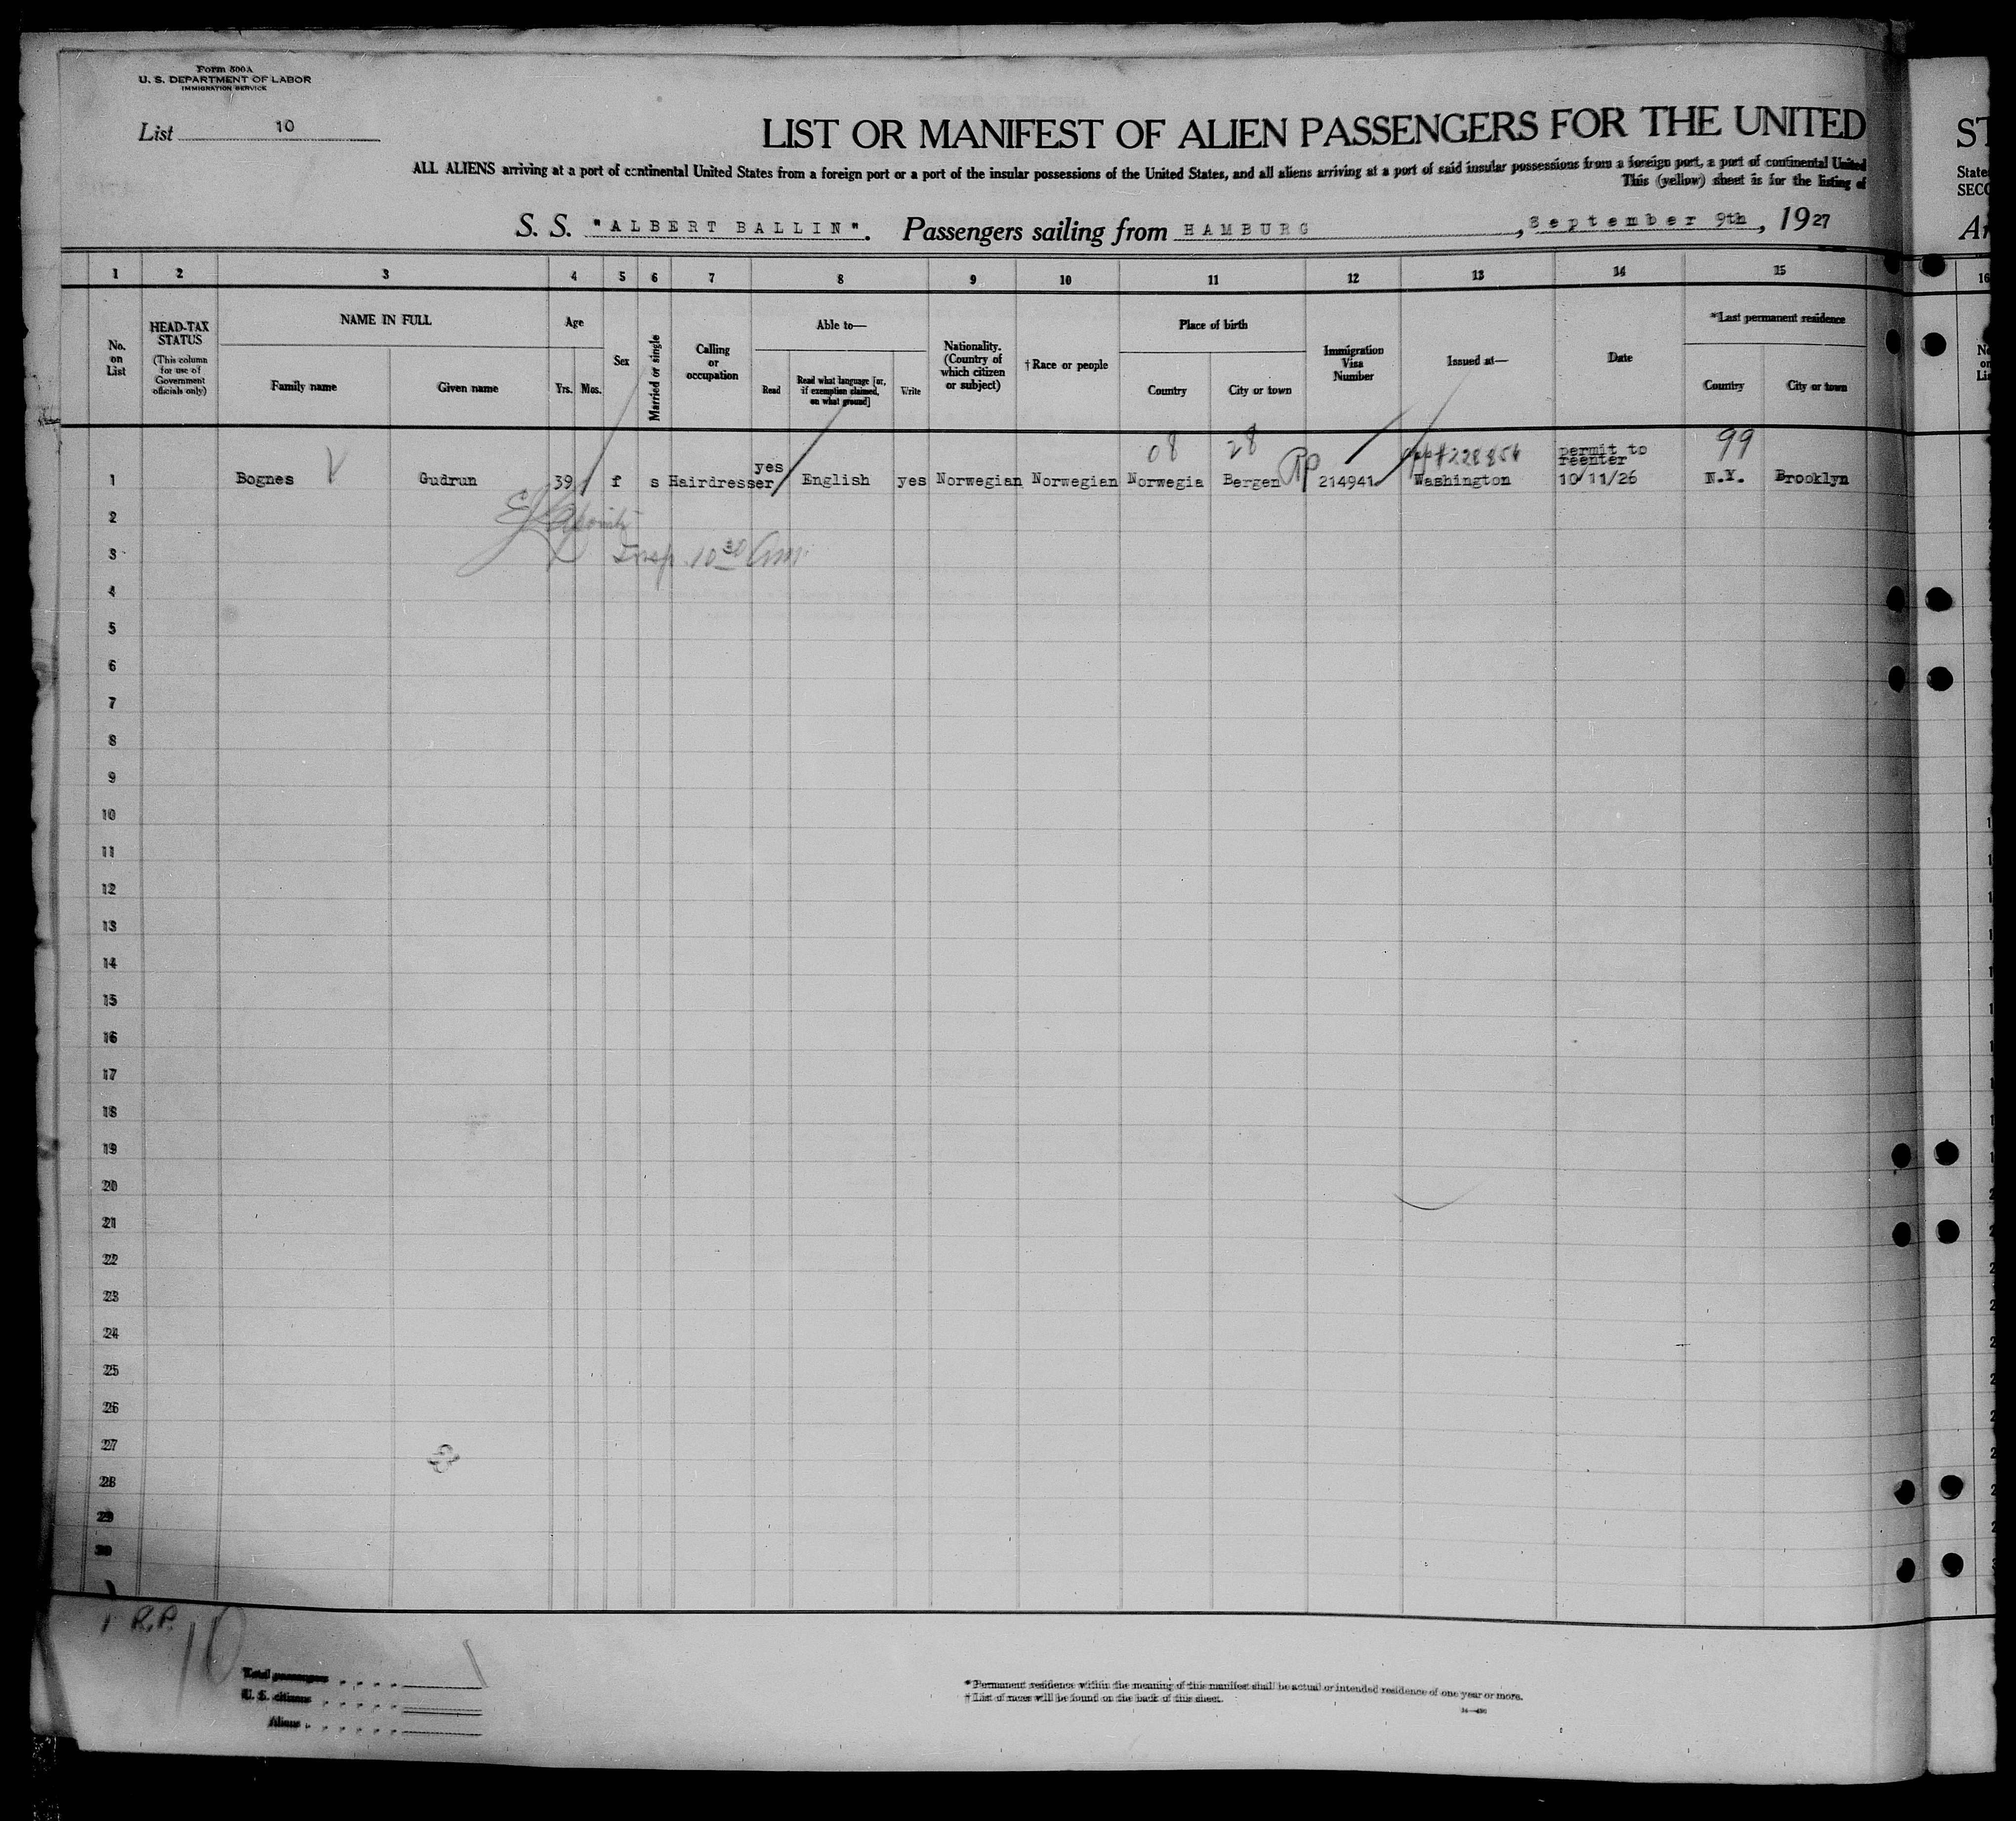 Form 500A
U. S. DEPARTMENT OF LABOR
IMMIGRATION SERVICE
List 10
LIST OR MANIFEST OF ALIEN PASSENGERS FOR THE UNITED
ALL ALIENS arriving at a port of continental United States from a foreign port or a port of the insular possessions of the United States, and all aliens arriving at a port of said insular possessions from a foreign port, a port of continental United
This (yellow) sheet is for the listing of
S. S. "ALBERT BALLIN". Passengers sailing from HAMBURG, September 9th, 1927
1 2 3 4 5 6 7 8 9 10 11 12 13 14 15
No. on List
HEAD-TAX STATUS
(This column for use of Government officials only)
NAME IN FULL
Family name Given name
Age
Yrs. Mos.
Sex
Married or single
Calling or occupation
Able to—
Read
Read what language [or, if exemption claimed, on what ground]
Write
Nationality. (Country of which citizen or subject)
† Race or people
Place of birth
Country City or town
Immigration Visa Number
Issued at—
Date
*Last permanent residence
Country City or town
08 28 99
1 Bognes Gudrun 39 f s Hairdresser yes English yes Norwegian Norwegian Norwegia Bergen RP 214941 Washington permit to reenter 10/11/26 N.Y. Brooklyn
2
3 Insp. 10 30 Am
4
5
6
7
8
9
10
11
12
13
14
15
16
17
18
19
20
21
22
23
24
25
26
27
28
29
30
1 R.P. 10
Total passengers
U. S. citizens
Aliens
* Permanent residence within the meaning of this manifest shall be actual or intended residence of one year or more.
† List of races will be found on the back of this sheet.
ST
State
SECO
16